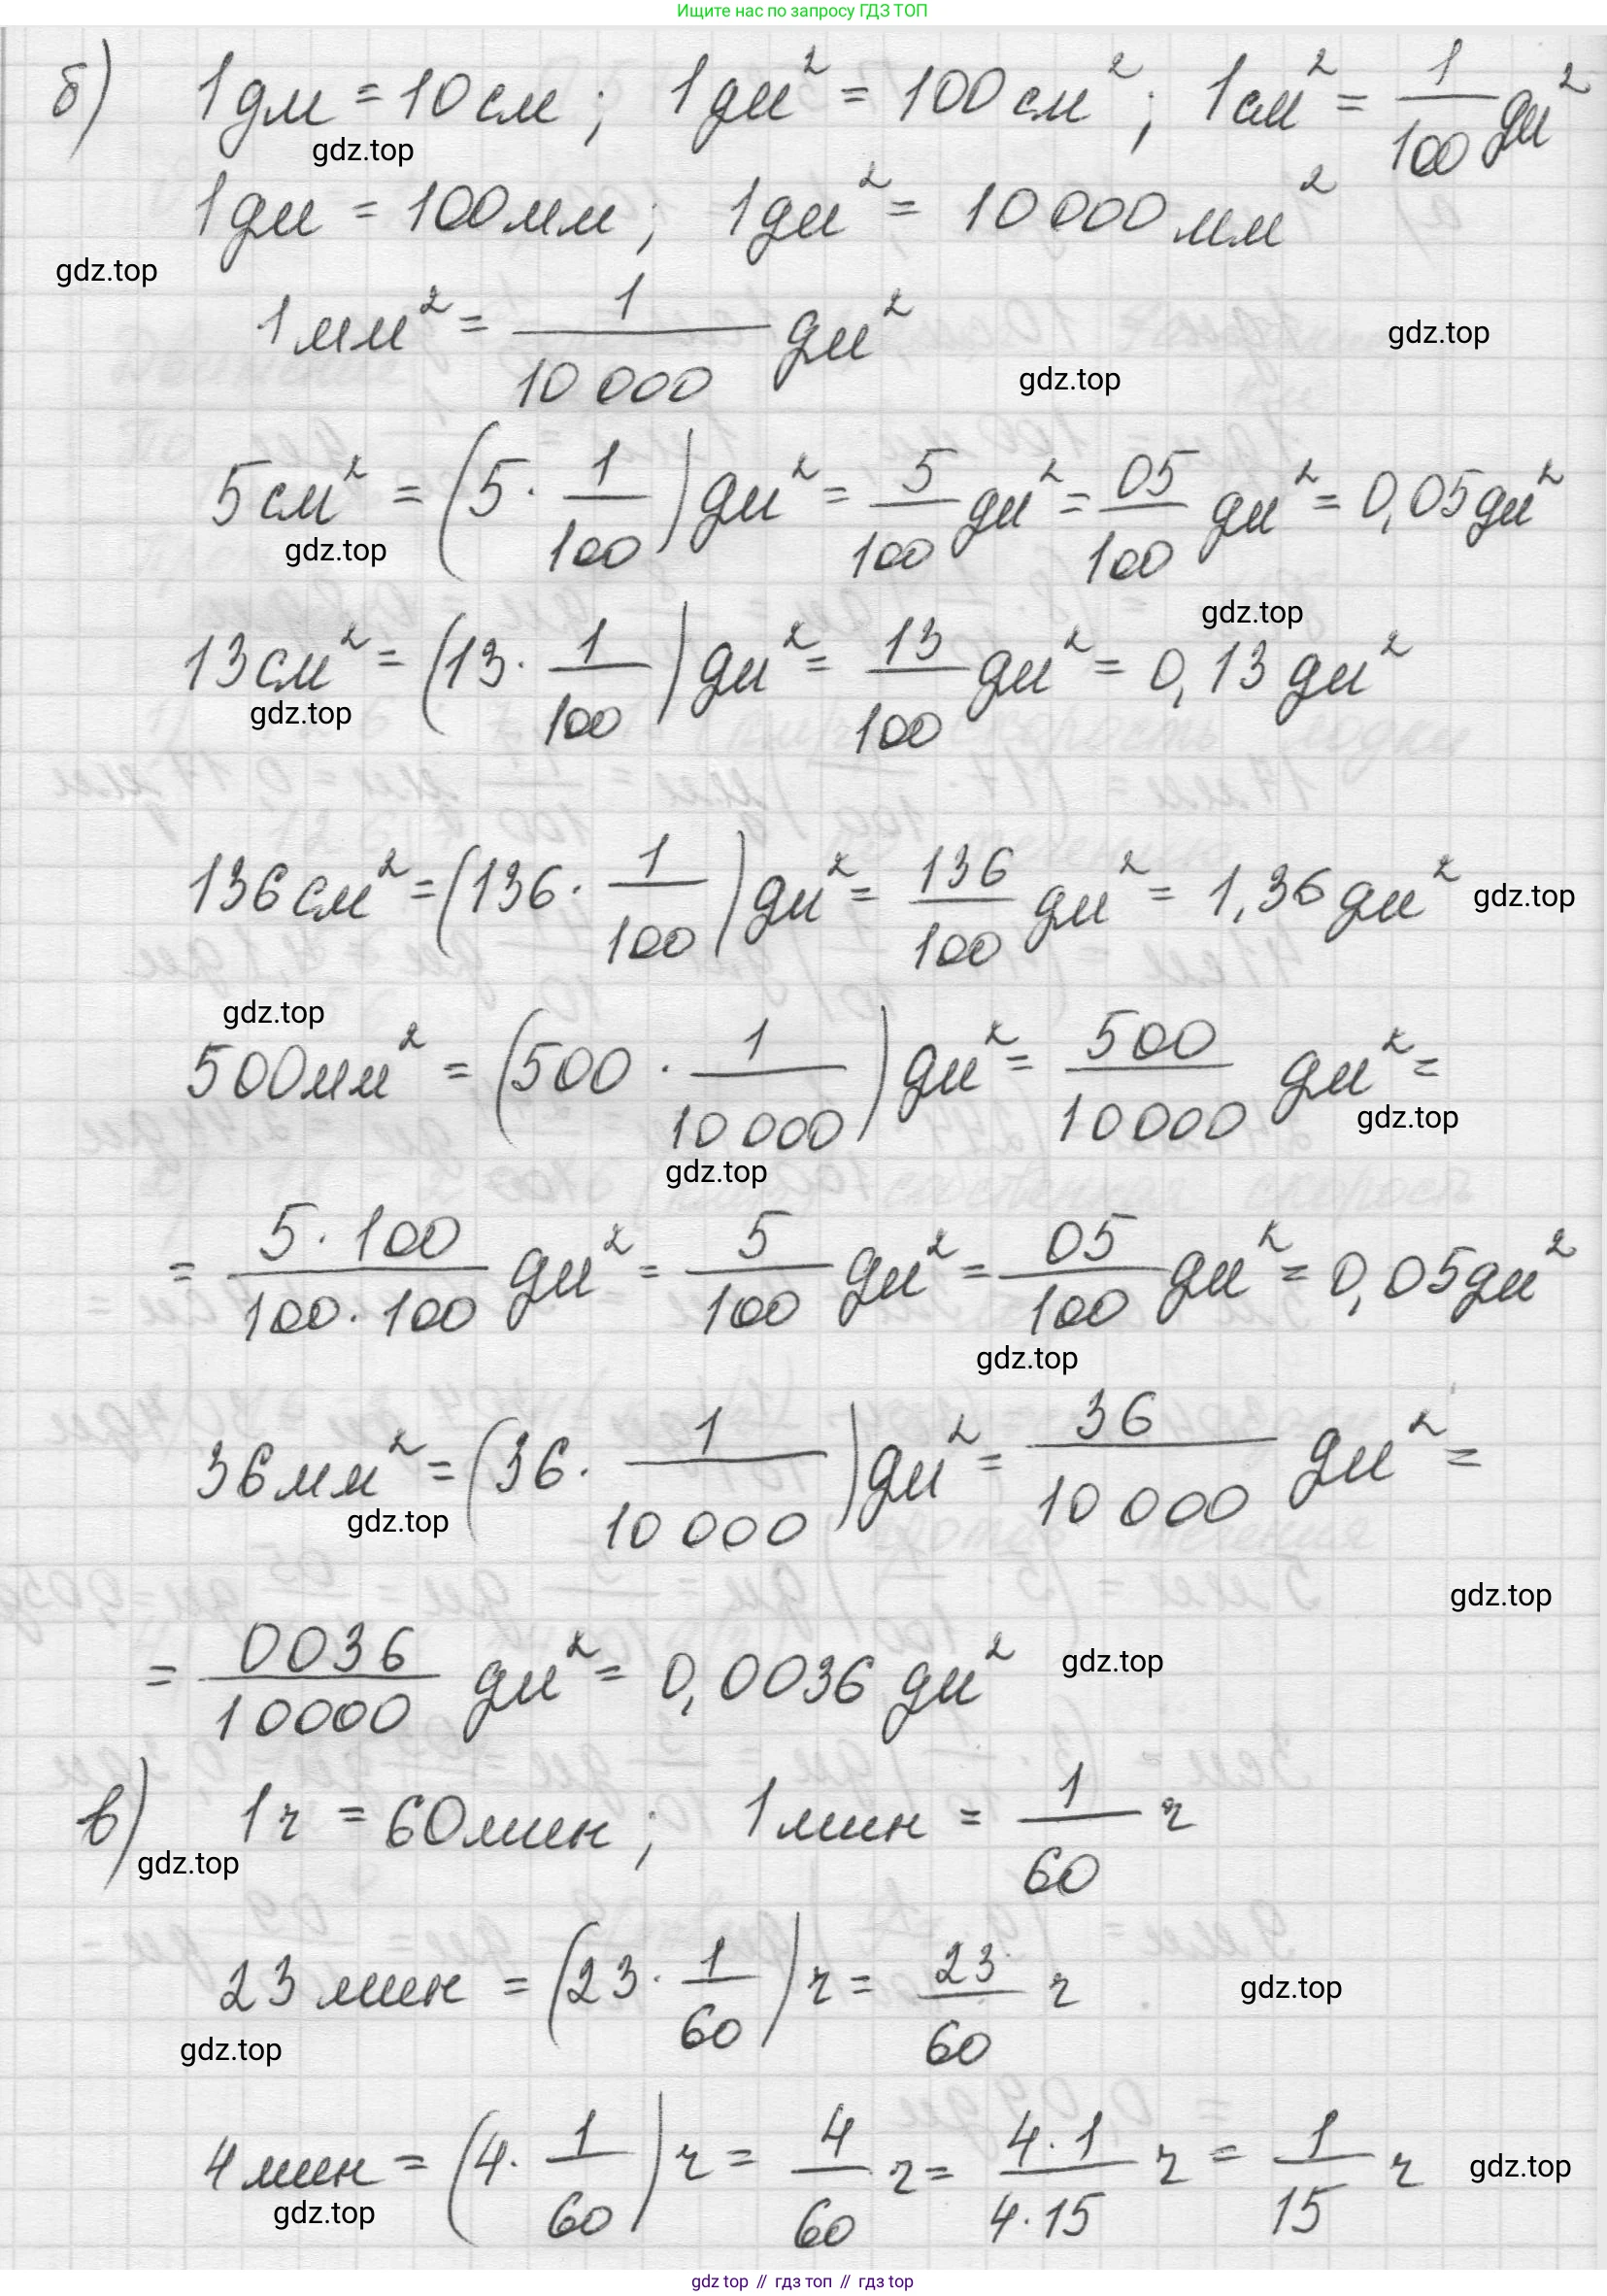 Ищите нас по запросу ГДЗ ТОП
б) 1 дм = 10 см; 1 дм² = 100 см²; 1 см² = 1/100 дм²
gdz.top
1 дм = 100 мм; 1 дм² = 10 000 мм²
gdz.top
1 мм² = 1/10 000 дм²
gdz.top
gdz.top
5 см² = (5 · 1/100) дм² = 5/100 дм² = 05/100 дм² = 0,05 дм²
gdz.top
gdz.top
13 см² = (13 · 1/100) дм² = 13/100 дм² = 0,13 дм²
gdz.top
136 см² = (136 · 1/100) дм² = 136/100 дм² = 1,36 дм² gdz.top
gdz.top
500 мм² = (500 · 1/10 000) дм² = 500/10000 дм² =
gdz.top
gdz.top
= 5 · 100/100 · 100 дм² = 5/100 дм² = 05/100 дм² = 0,05 дм²
gdz.top
36 мм² = (36 · 1/10 000) дм² = 36/10 000 дм² =
gdz.top
gdz.top
= 0036/10000 дм² = 0,0036 дм² gdz.top
в) 1 ч = 60 мин; 1 мин = 1/60 ч
gdz.top
23 мин = (23 · 1/60) ч = 23/60 ч gdz.top
gdz.top
4 мин = (4 · 1/60) ч = 4/60 ч = 4 · 1/4 · 15 ч = 1/15 ч gdz.top
gdz.top
gdz top // гдз топ // gdz top